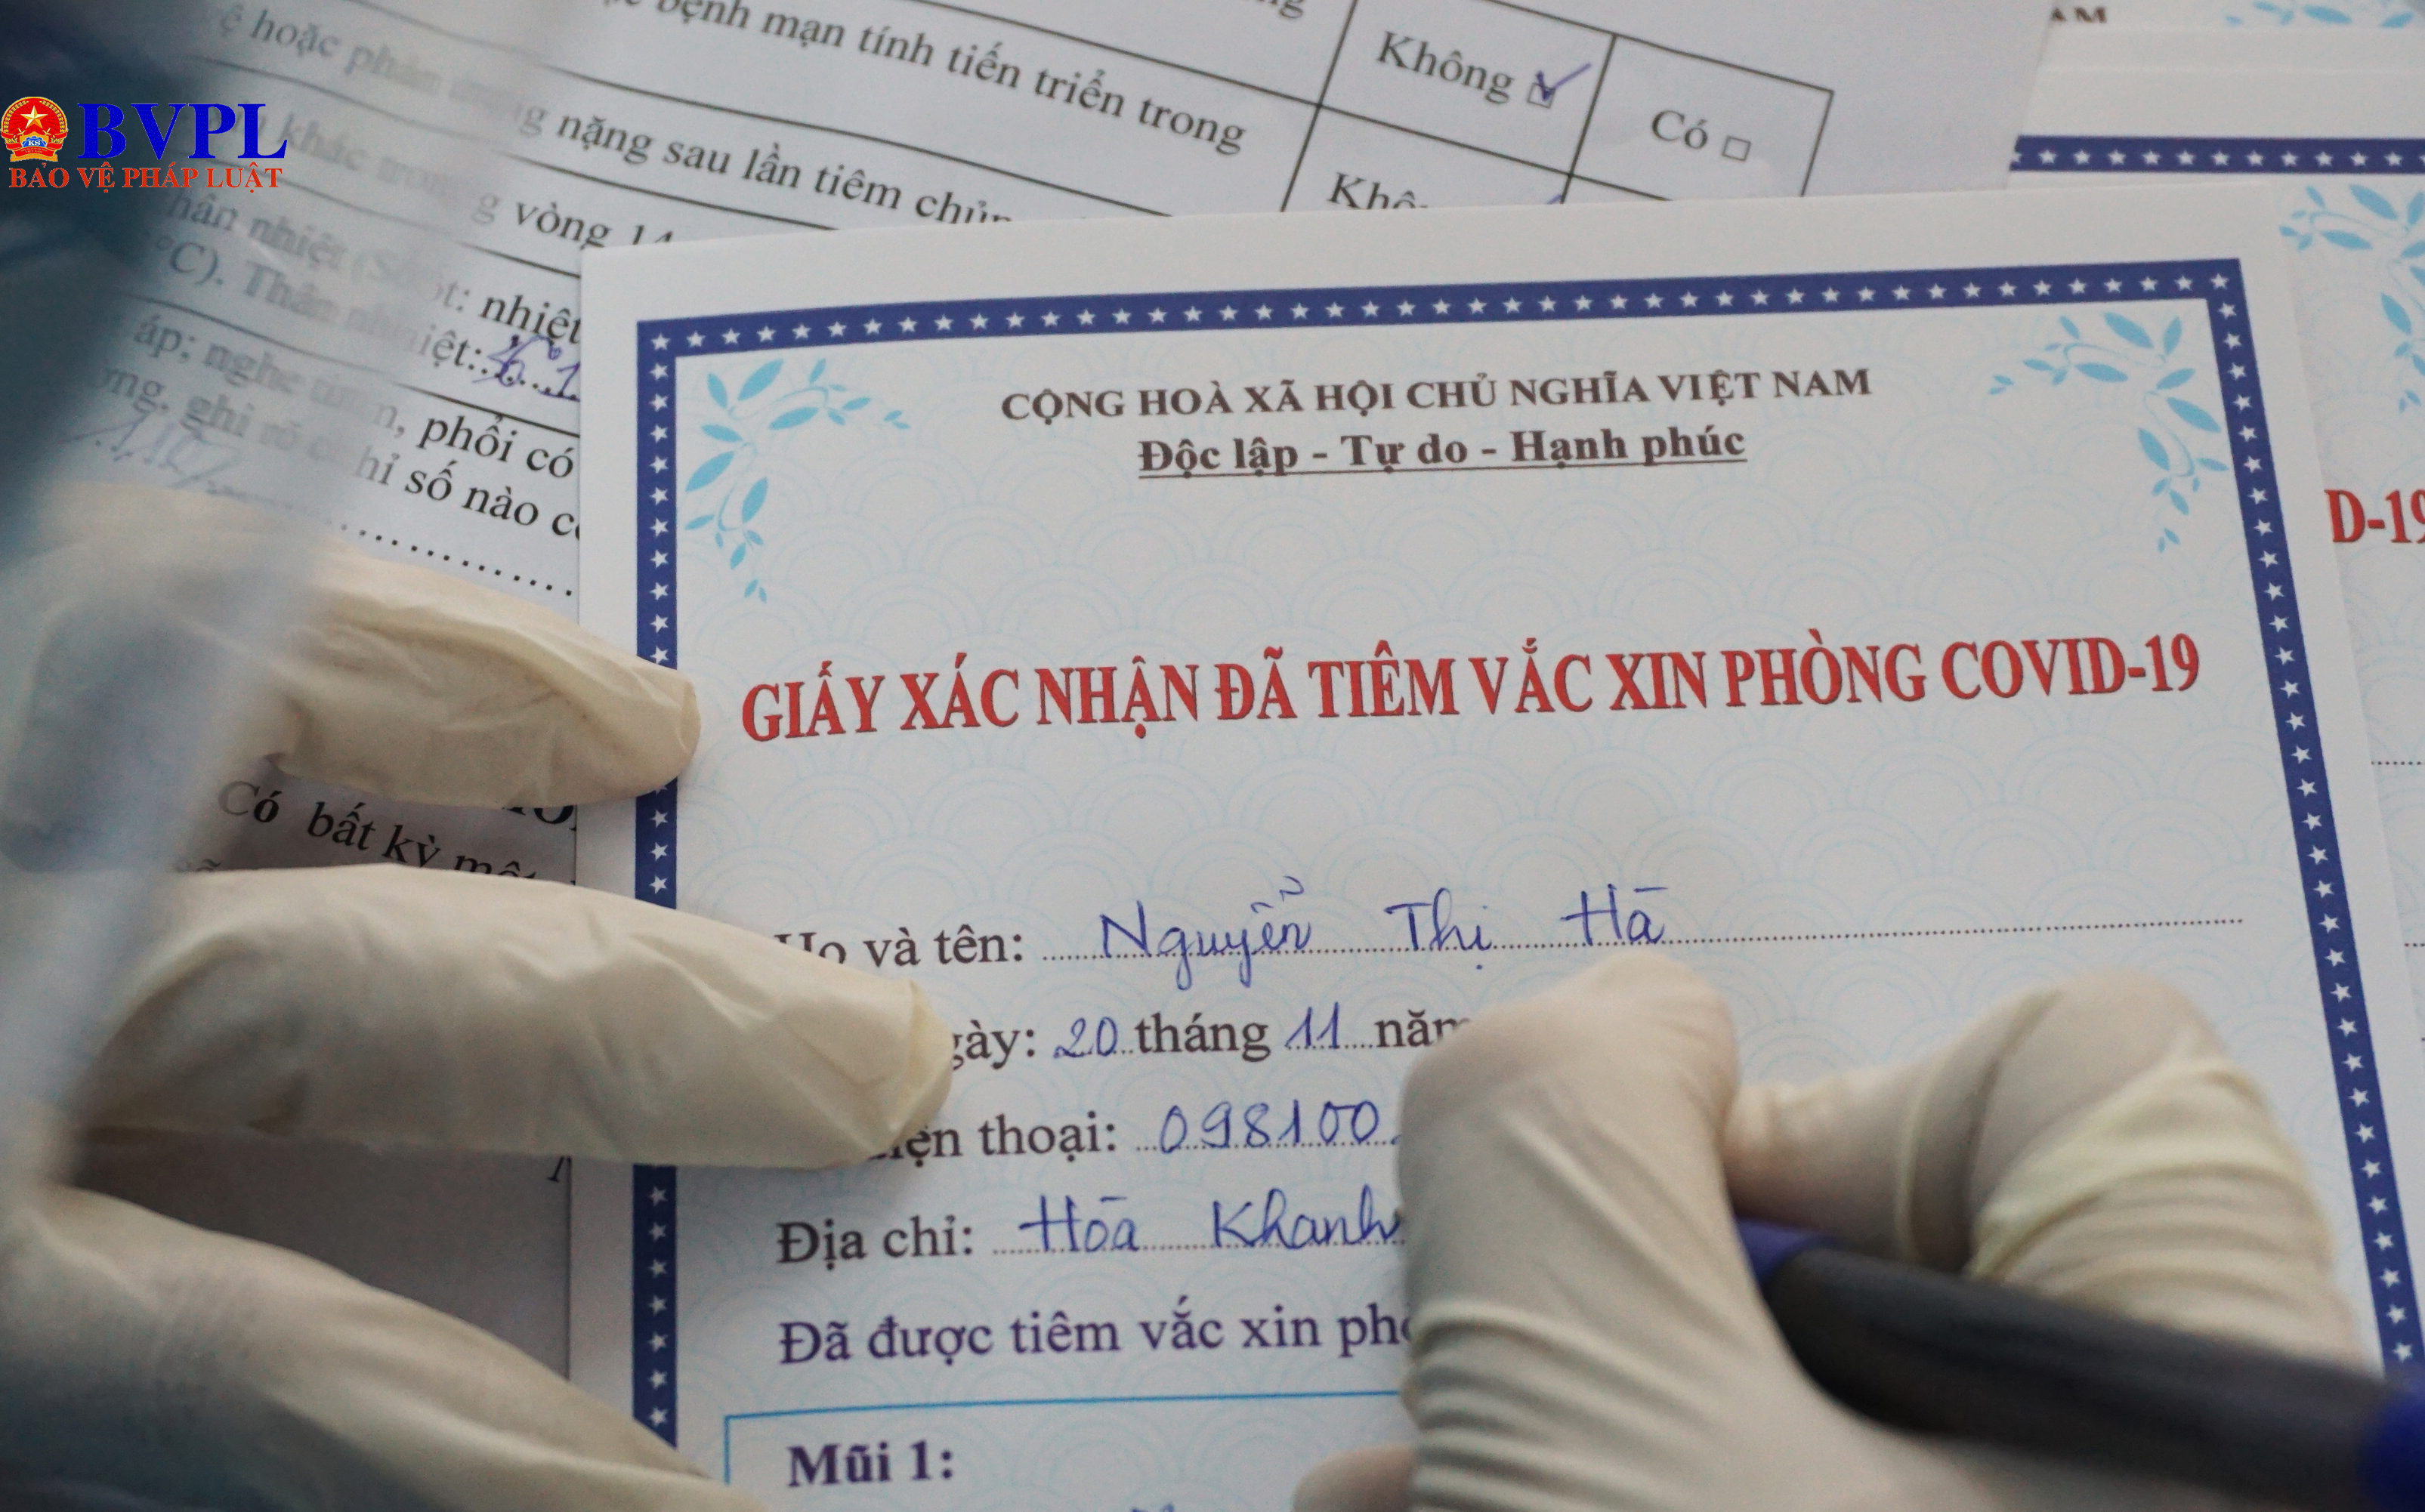 BVPL
BẢO VỆ PHÁP LUẬT
bệnh mạn tính tiến triển trong
Không
Có
hoặc phản ứng nặng sau lần tiêm chủng
khác trong vòng 14
thân nhiệt (Sốt: nhiệt
°C). Thân nhiệt:
áp; nghe tim, phổi có
ghi rõ chỉ số nào
Có bất kỳ
AM
D-19
CỘNG HOÀ XÃ HỘI CHỦ NGHĨA VIỆT NAM
Độc lập - Tự do - Hạnh phúc
GIẤY XÁC NHẬN ĐÃ TIÊM VẮC XIN PHÒNG COVID-19
Họ và tên: Nguyễn Thị Hà
gày: 20 tháng 11 năm
iện thoại: 098100
Địa chỉ: Hòa Khanh
Đã được tiêm vắc xin phò
Mũi 1: